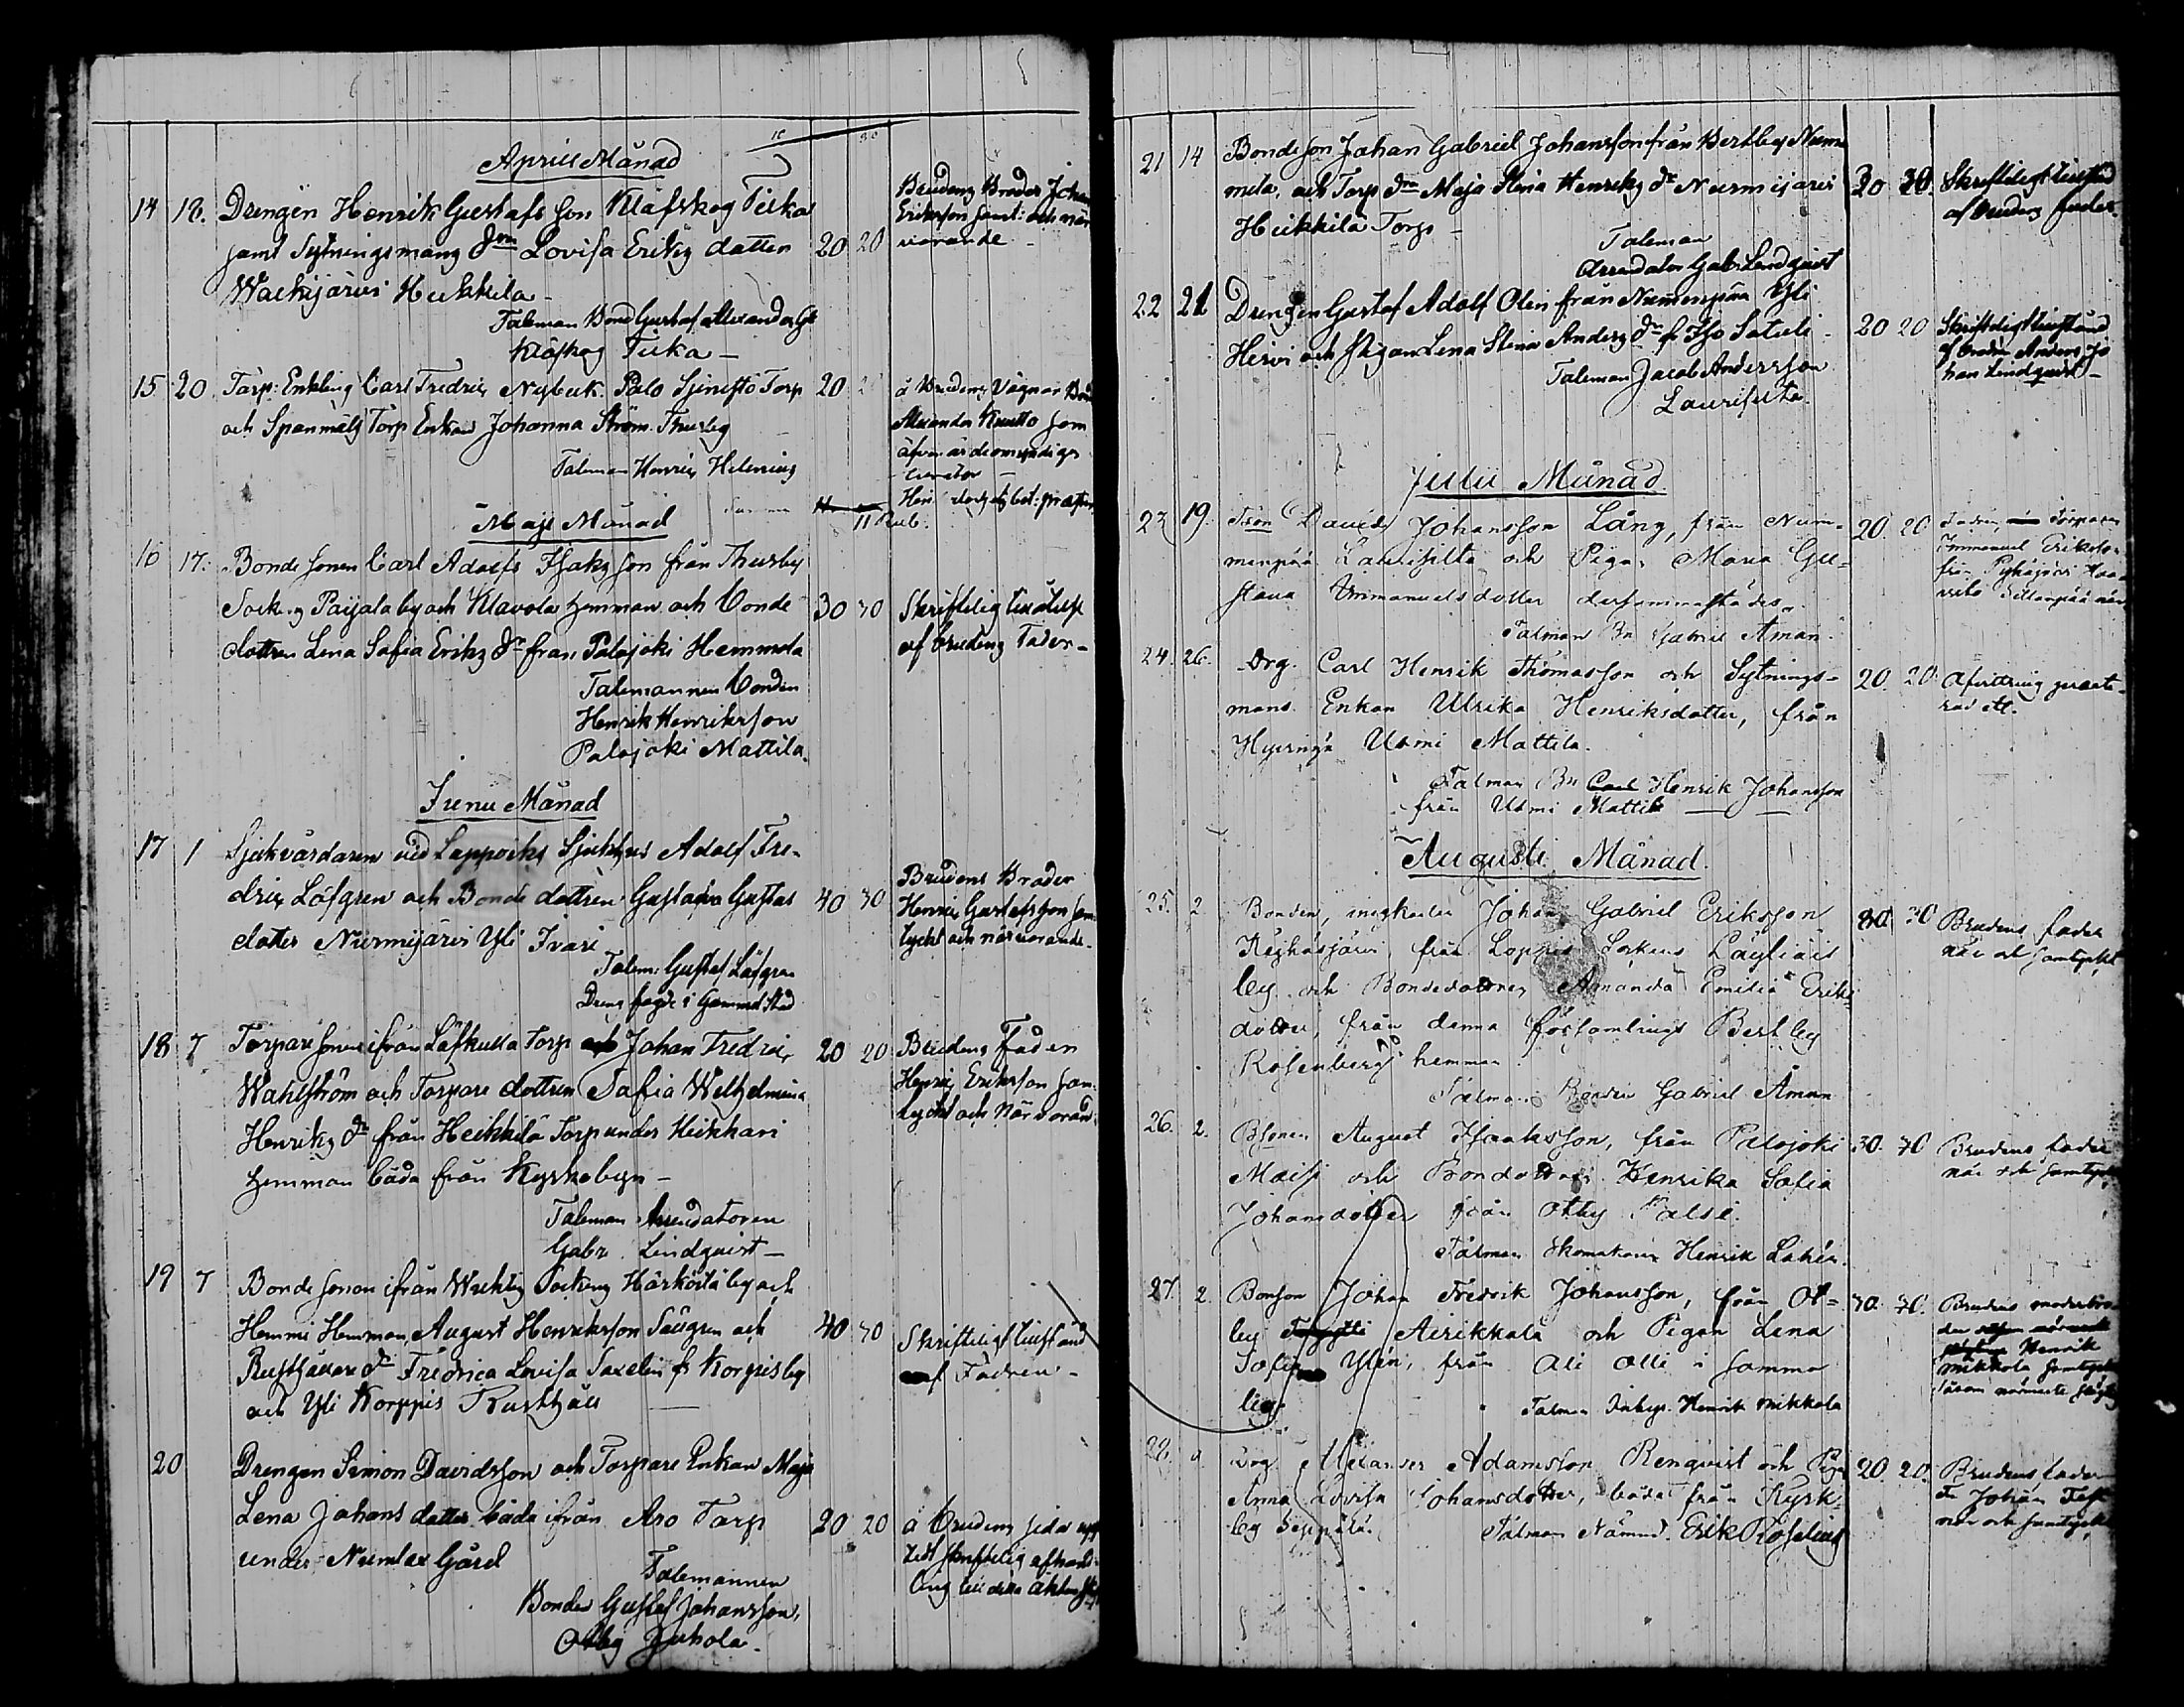 April Månad
14 18. Drengen Henrik Gustafsson Klåfskog Tuka
samt Sytningsmans Dr Lovisa Eriks dotter 20 20
Wackijärvi Heikkilä
Taleman Bond Gustaf Alexander Gs
Klåfskog Tuka
Brudens Broder Johan
Eriksson samt: och när
varande
15 20. Torp: Enkling Carl Fredric Nybeck Palo Torp 20 20
och Spanmåls Torp Enkan Johanna Ström Thusby
Taleman Henric Helenius
å Brudens Vägnar Bond
Alexander Knutto som
äfven är de omyndiges
curator
Maji Månad
11 Rub.
16 17. Bonde sonen Carl Adolfs Isaks son från Thusby
Sock. Paijala by och Klavola hemman och Bonde 30 30
dottren Lena Sofia Eriks Dr från Palojoki Hemmola
Talemannen Bonden
Henrik Henriksson
Palojoki Mattila.
Skriftelig tillåtelse
af Brudens Fader
Junii Månad
17 1 Sjukvårdaren vid Lappviks Sjukhus Adolf Fre-
dric Löfgren och Bonde dottren Gustafva Gustafs 40 30
dotter Nurmijärvi Yli Ivari
Talem: Gustaf Löfgren
Dreng i Gammelstad
Brudens Broder
Henric Gustafsson sam
tyckt och närvarande
18 7 Torpare sonen ifrån Löfkulla Torp Johan Fredric 20 20
Wahlström och Torpare dottren Sofia Wilhelmina
Henriks Dr från Heikkilä Torp under Heikkari
hemman båda från Kyrkobyn
Taleman Arrendatoren
Gabr. Lindquist
Brudens Fader
Henric Eriksson sam
tyckt och närvarand
19 7 Bonde sonen ifrån Wichtis Sockens Härköilä by och
Hemmi Hemman, August Henriksson Sågren och 40 30
Rusthållare Dr Fredrica Lovisa Saxelin fr Korpis by
och Yli Korppis Rusthåll
Skriftligt tillstånd
af Fadren
20 Drengen Simon Davidsson och Torpare Enkan Maja
Lena Johans dotter båda ifrån Aro Torp 20 20
under Numlax Gård
Talemannen
Bonden Gustaf Johansson,
Otby Juhola
å Brudens sida upp
tedt skriftelig afhand
ling till detta
21 14 Bondeson Johan Gabriel Johansson från Bertby Num
mila, och Torp Dr Maja Stina Henriks Dr Nurmijärvi 30 30
Heikkilä Torp
Taleman
Arrendator Gab. Lindquist
Skriftligt tillstånd
af Brudens fader
22 21 Drengen Gustaf Adolf Olin från Numenpää Yli
Hervi och Pigan Lena Stina Anders Dr fr Iso Sätuli 20 20
Taleman Jacob Andersson
Laurisilta.
Skriftligt tillstånd
af Anders Jo
han Lindquist
Julii Månad
23 19. David Johansson Lång, från Num- 20. 20
menpää Laurisilta och Pigan Maria Gu-
stava Immanuelsdotter dersammastädes.
Talman Bn Gabriel Åman.
Torparen
Immanuel Eriksson
från
24. 26. Drg. Carl Henrik Thomasson och Sytnings- 20. 20.
mans Enkan Ulrika Henriksdotter, från
Hyvinge Uomi Mattila.
Talman Bn Carl Henrik Johansson
från Uomi Mattila
Afvittring præste-
rad ett.
Augusti Månad.
25. 2. Bonden, Johan Gabriel Eriksson 30
från Loppis Sockens Läyliäis
by och Bondedottren Amanda Emilia Eriks
dotter, från denna församlings Bertby
Rosenberg hemman
Talman Bonden Gabriel Åman
Brudens fader
när och samtyckt
26. 2. Bsonen August Isaksson, från Palojoki 30. 30
Maisi och Bondottren Henrika Sofia
Johansdotter från Otby Palsi.
Talman Skomakaren Henrik Lahén.
Brudens fader
när och samtyckt
27. 2. Bonson Johan Fredrik Johansson, från Ot= 30. 30.
by Aerikkala och Pigan Lena
Sofia Ylén, från Ali Olli i samma
by.
Talman Inhys. Henrik Mikkola
Brudens morbro-
der
Henrik
Mikkola samtyckt
såsom närmaste
28. Drg. Alexander Adamsson Renqvist och Pig 20. 20.
Anna Lovisa Johansdotter, båda från Kyrk-
by Seppälä. Talman Nämnd. Erik Roselius
Brudens fader
Johan
när och samtyckt